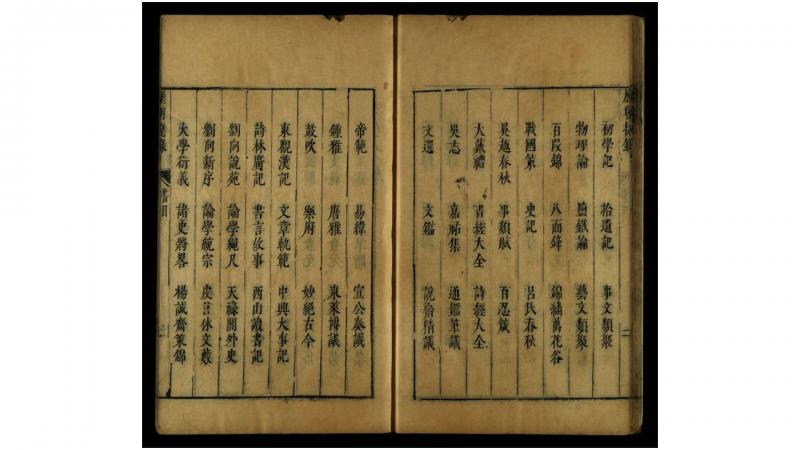 初學記 拾遺記 事文類聚
物理論 鹽鐵論 藝文類聚
百段錦 八面鋒 錦繡萬花谷
戰國策 史記 呂氏春秋
吳越春秋 事類賦 百忍箴
大戴禮 書經大全 詩經大全
吳志 嘉祐集 通鑑筆議
文選 文鑑 說齋精議
帝範 易緯 宜公奏議
鍾雅 唐雅 東萊博議
鼓吹 樂府 妙絕古今
東觀漢記 文章軌範 中興大事記
詩林廣記 書言故事 西山讀書記
劉向說苑 論學繩尺 天祿閣外史
劉向新序 論學統宗 虞言休文藪
大學衍義 諸史將畧 楊誠齋策錦
書目
二